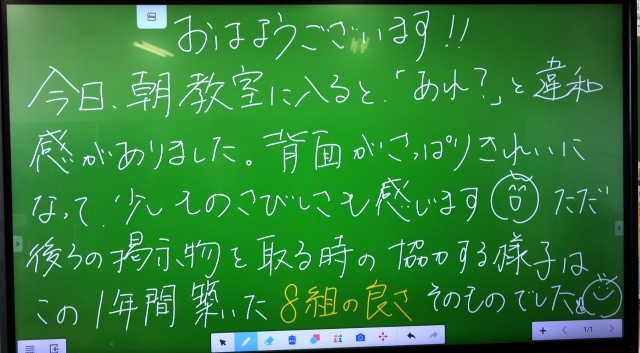 おはようございます!!
今日、朝教室に入ると、「あれ?」と違和
感がありました。背面がさっぱりきれいに
なって、少しものさびしさも感じます ただ
後ろの掲示物を取る時の協力する様子は
この1年間築いた8組の良さそのものでした。
1/1